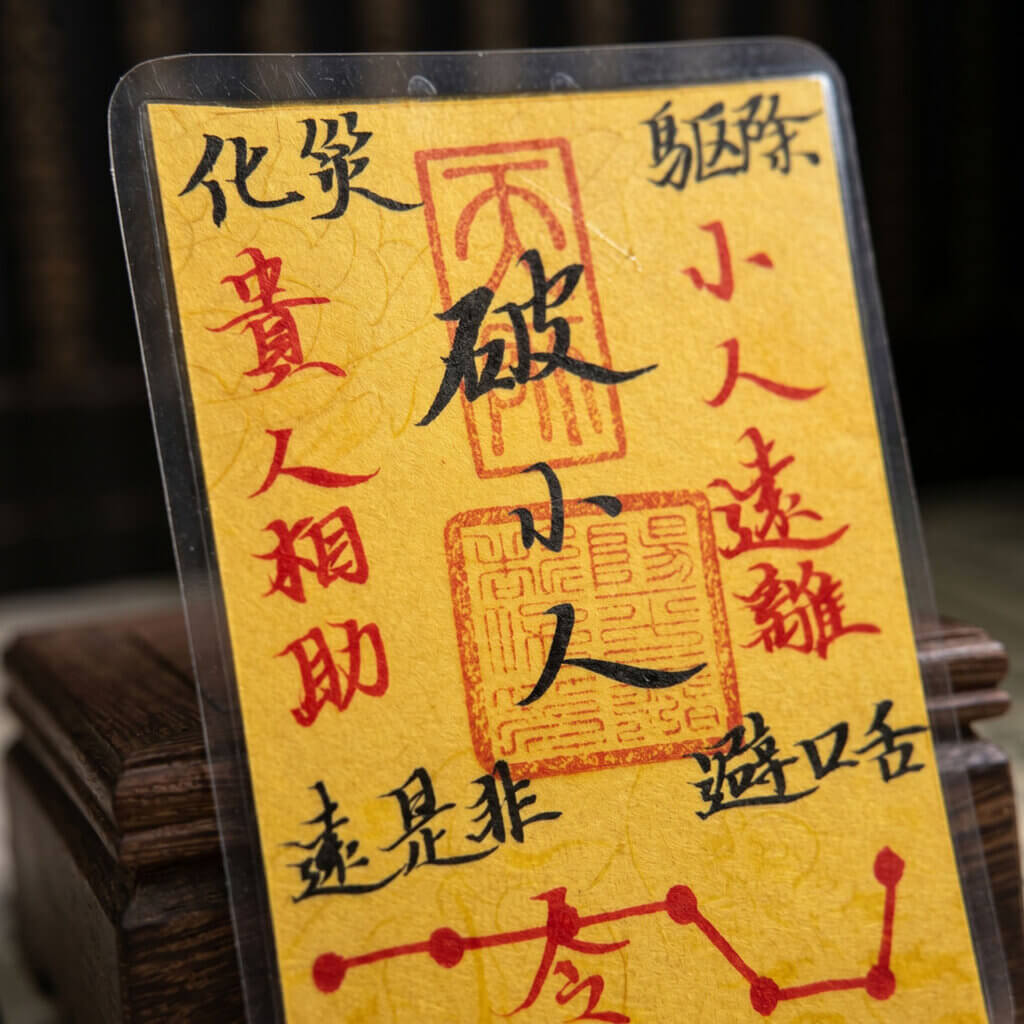 化災
驅除
破小人
小人遠離
貴人相助
遠是非
避口舌
令